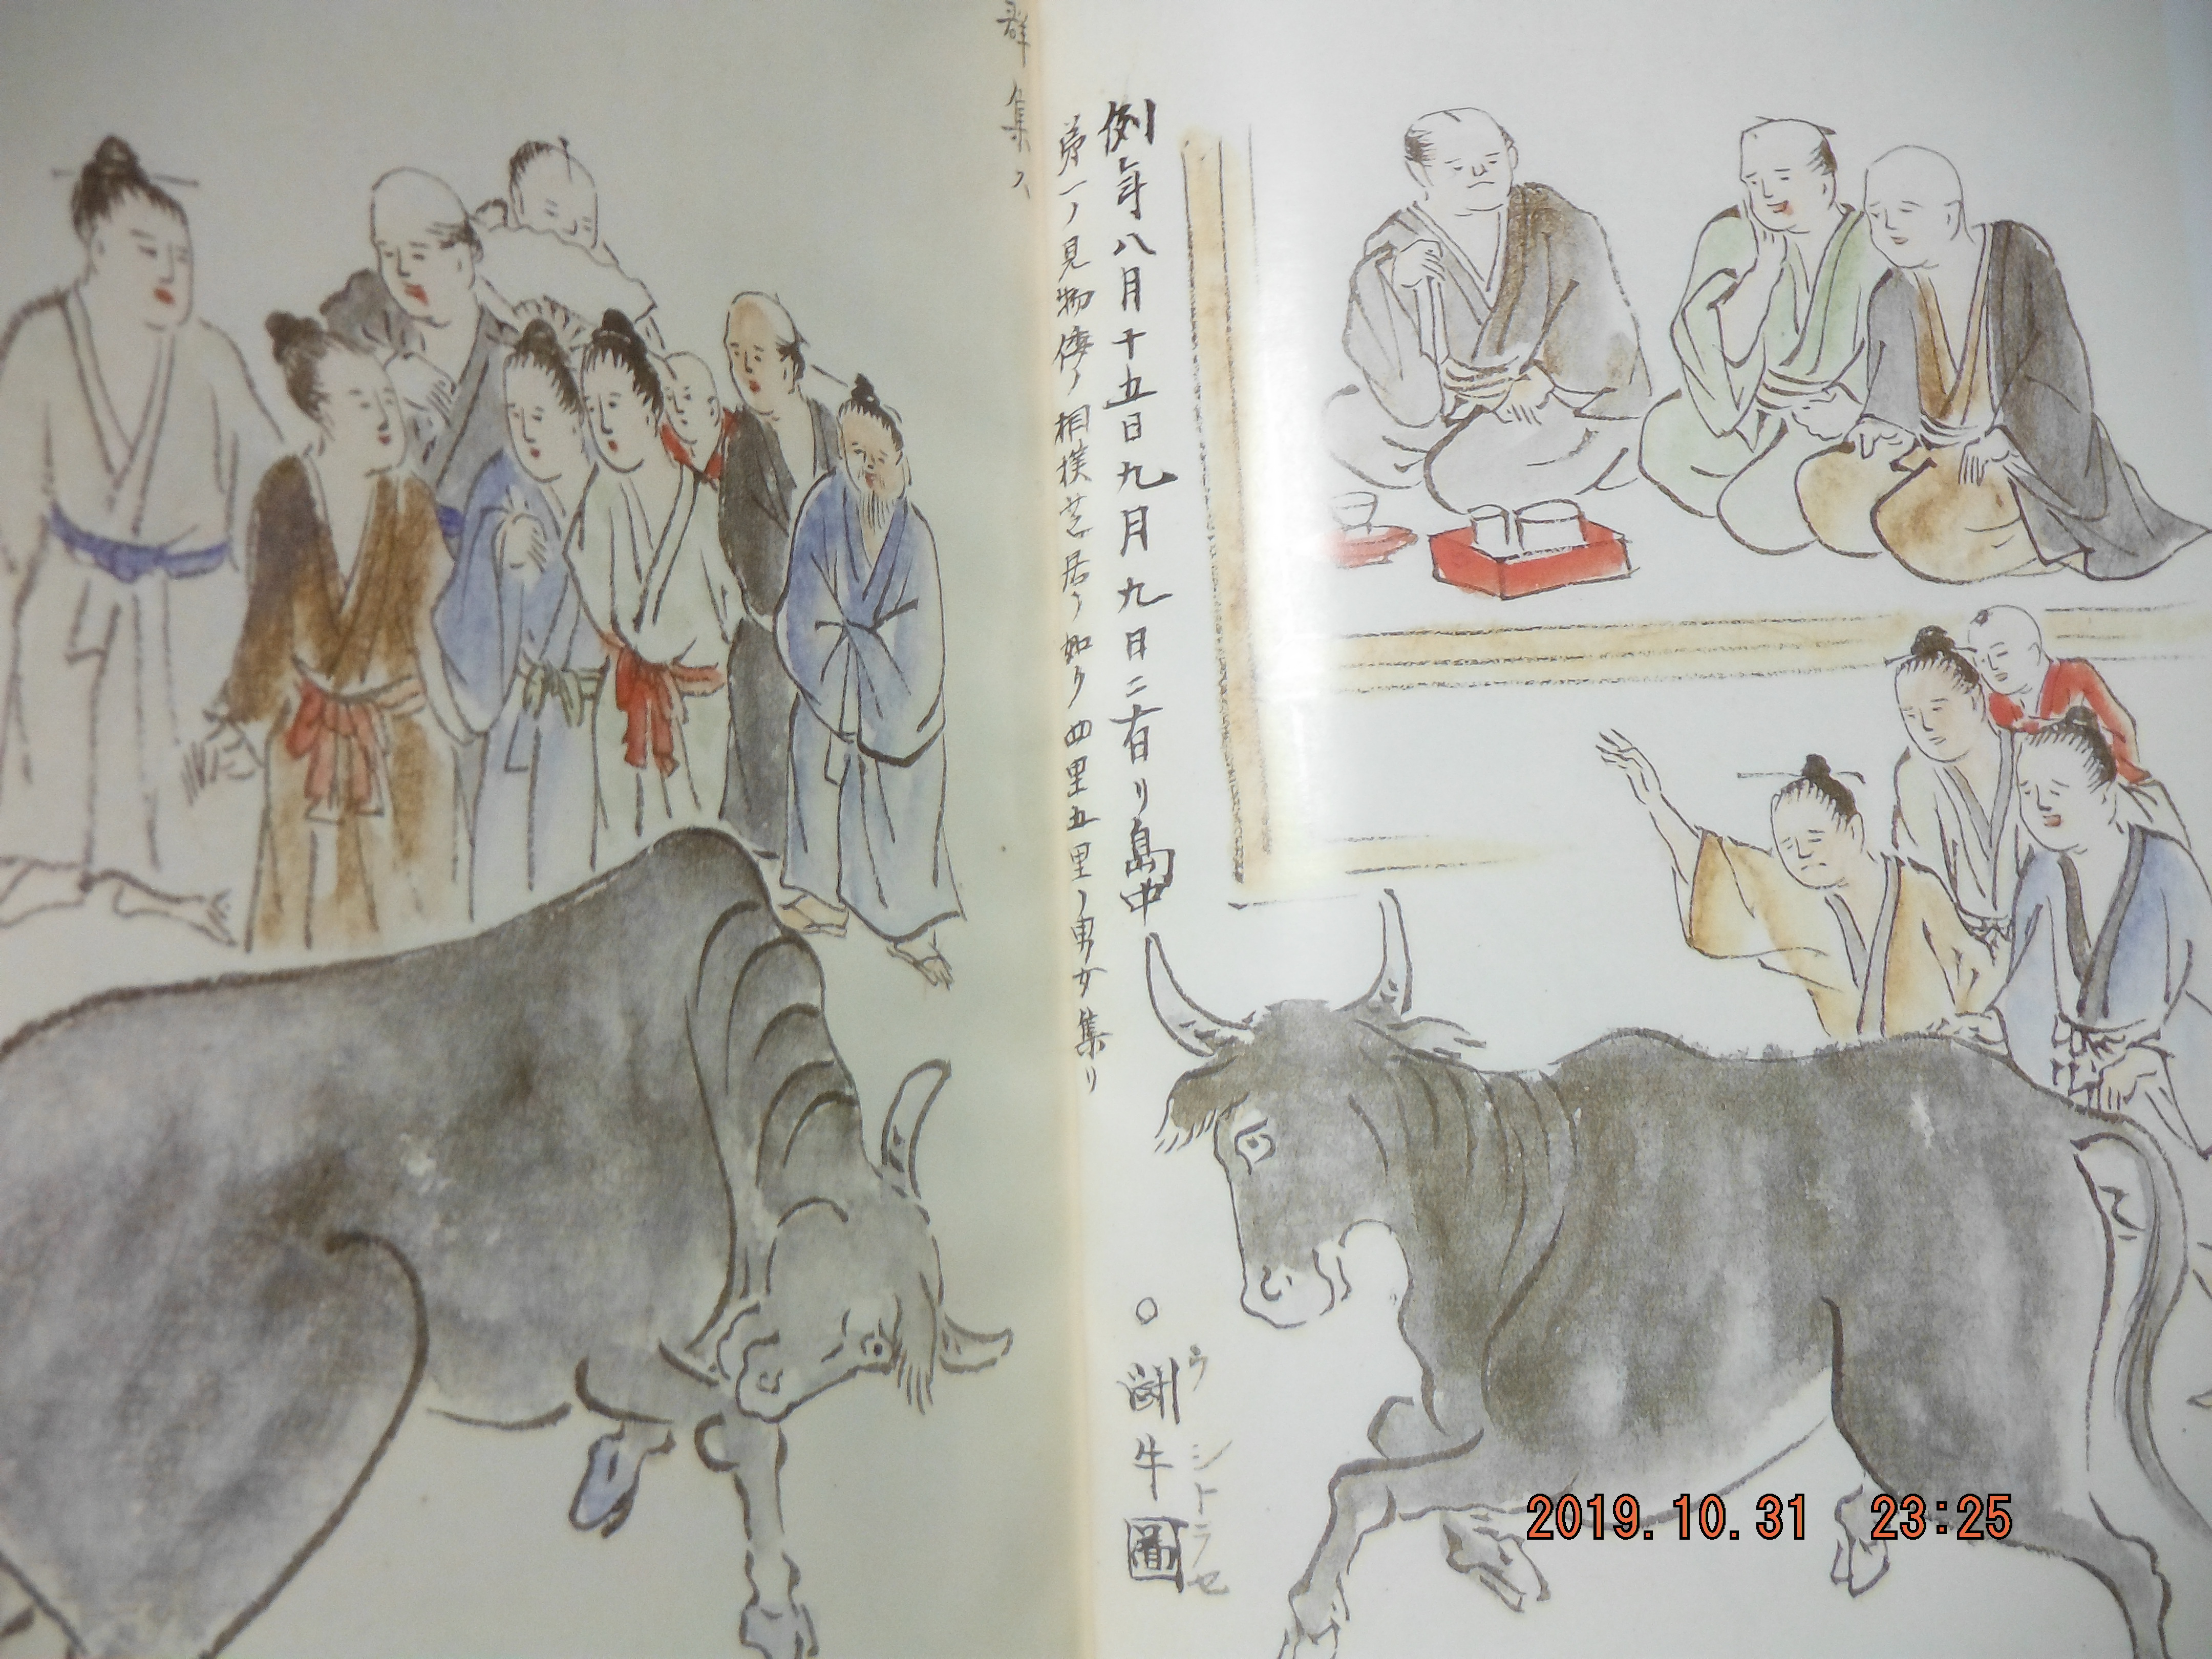 例年八月十五日九月九日ニ有リ島中
第一ノ見物侍ノ相撲芝居ノ如ク四里五里ノ男女集リ
群集ス
○闘牛圖
ウシトラセ
2019.10.31 23:25